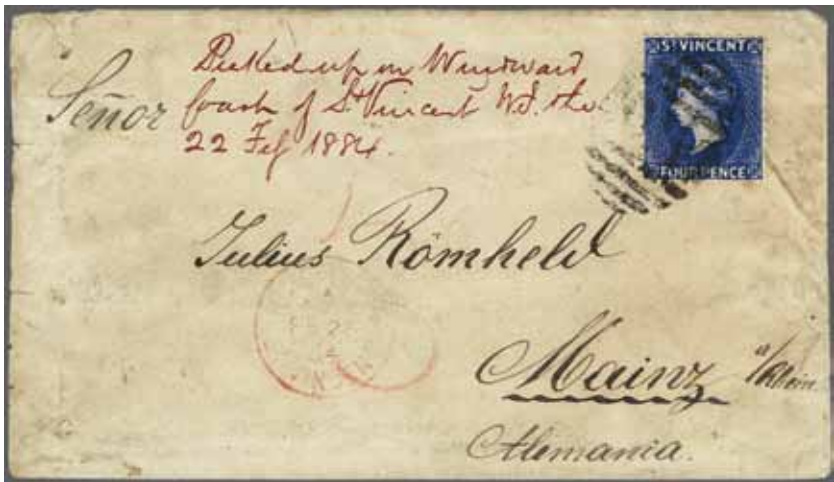 Picked up on Windward
Coast of St. Vincent W.I. the
22 Feb 1884.
Señor
ST VINCENT
FOUR PENCE
Julius Römheld
Mainz a/Rhein
Alemania.